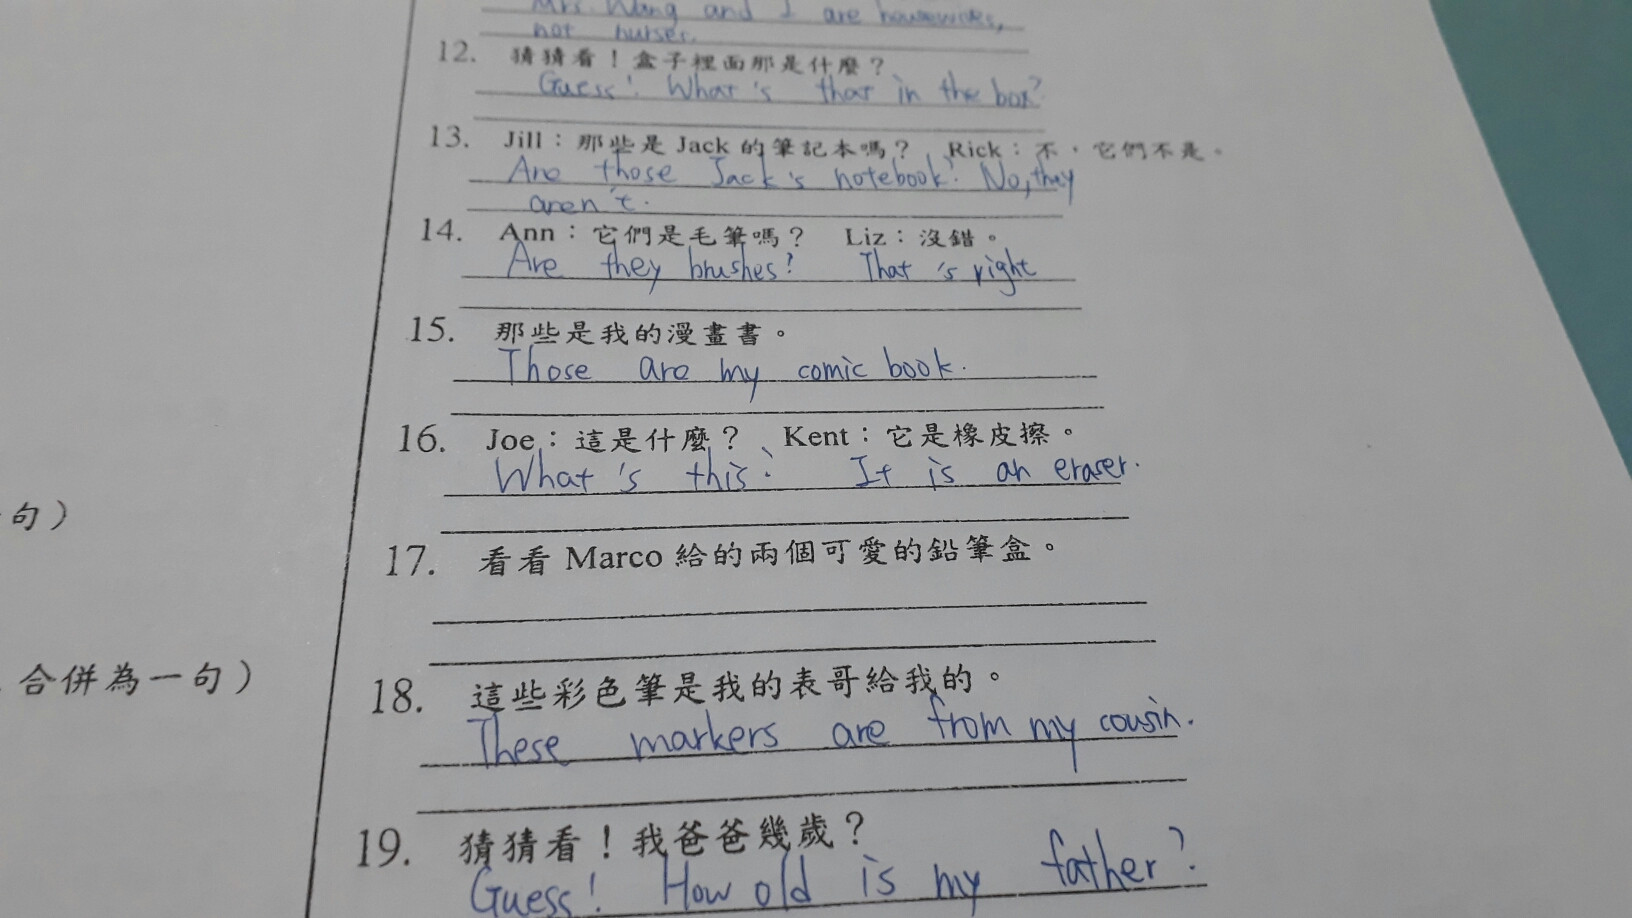 Mrs. Wang and I are housewives,
not nurses.
12. 猜猜看！盒子裡面那是什麼？
Guess! What's that in the box?
13. Jill：那些是 Jack 的筆記本嗎？ Rick：不，它們不是。
Are those Jack's notebook? No, they
aren't.
14. Ann：它們是毛筆嗎？ Liz：沒錯。
Are they brushes? That's right
15. 那些是我的漫畫書。
Those are my comic book.
16. Joe：這是什麼？ Kent：它是橡皮擦。
What's this? It is an eraser.
句）
17. 看看 Marco 給的兩個可愛的鉛筆盒。
合併為一句）
18. 這些彩色筆是我的表哥給我的。
These markers are from my cousin.
19. 猜猜看！我爸爸幾歲？
Guess! How old is my father?